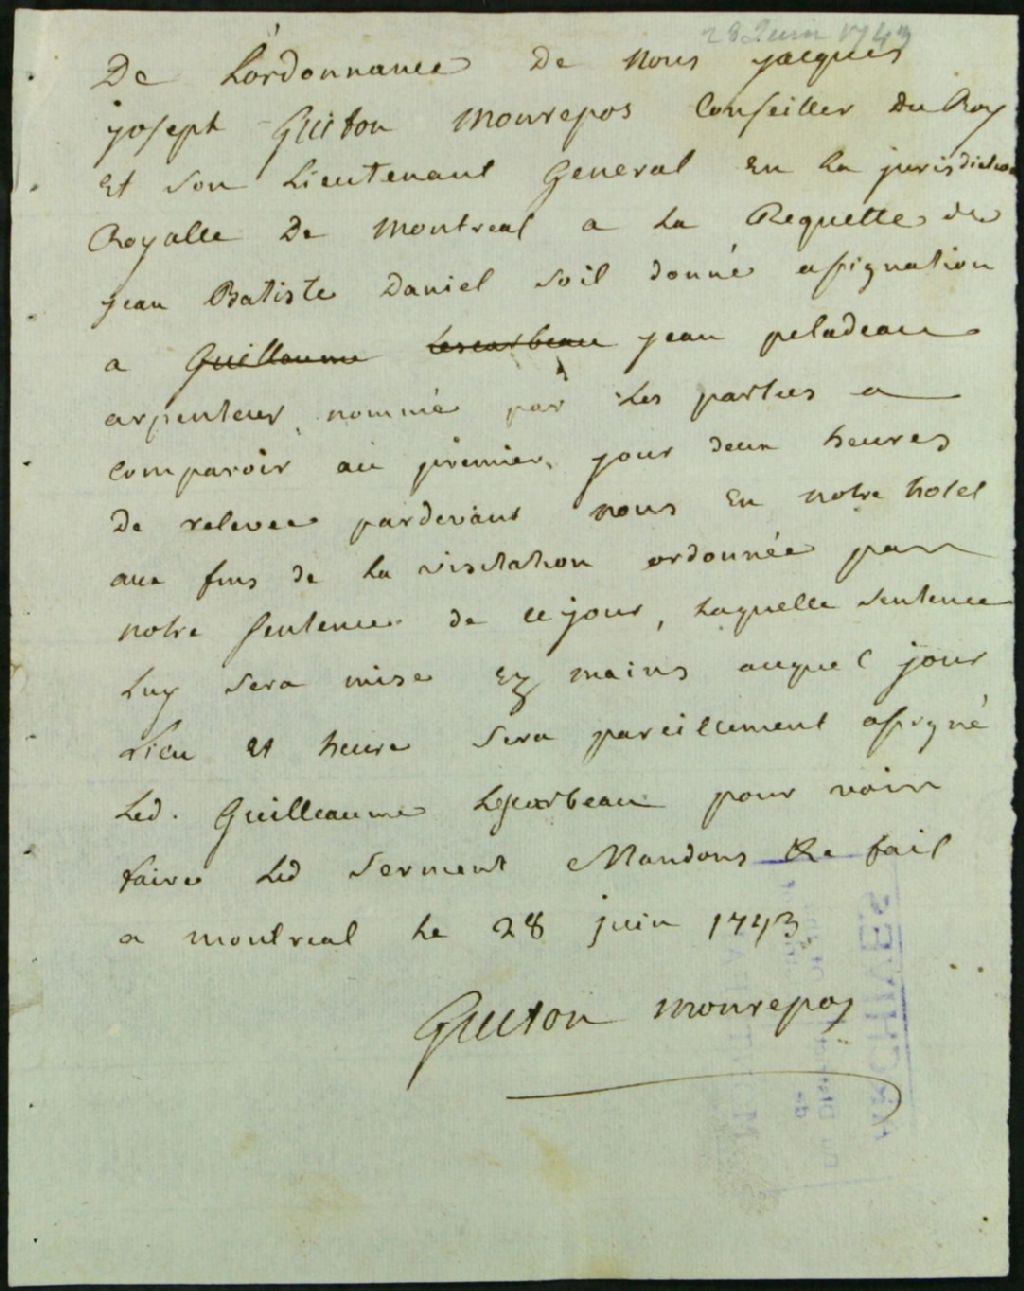 28 Juin 1743
De Lordonnance De Nous jacques
joseph Guiton Monrepos Conseiller Du Roy
Et son Lieutenant General En La jurisdiction
Royalle De Montreal a La Requette de
jean Batiste Daniel soit donné assignation
a Guillaume Lescarbeau jean peladeau
arpenteur nommé par Les parties a
Comparoir au premier jour deux heures
De relevee pardevant nous En notre hotel
aux fins de La visitation ordonnée par
notre sentence de ce jour, Laquelle sentence
Luy sera mise Ez mains auquel jour
Lieu et heure sera pareillement assigné
Led. Guilleaume Lescarbeau pour voir
faire Led serment Mandons &c fait
a montreal Le 28 juin 1743
Guiton Monrepos
ARCHIVES
du District
de